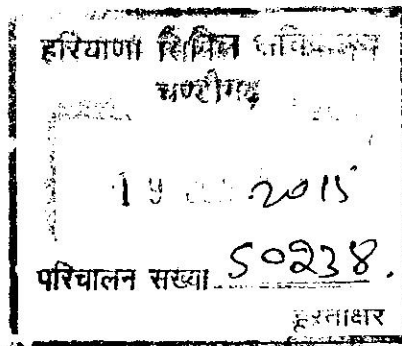 हरियाणा सिविल सचिवालय
चण्डीगढ़
19 2015
परिचालन सख्या 50238.
हस्ताक्षर